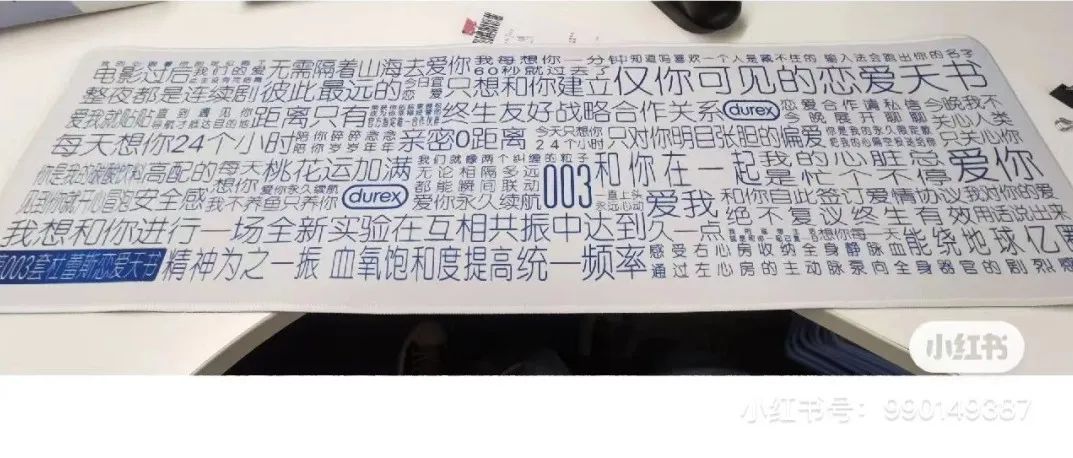 电影过后我们的爱无需隔着山海去爱你我每想你一分钟知道吗喜欢一个人是藏不住的 输入法会跑出你的名字
60秒就过去了
整夜都是连续剧彼此最远的恋爱只想和你建立仅你可见的恋爱天书
爱我就贴贴直到遇见你距离只有终生友好战略合作关系durex恋爱合作请私信今晚我不
导航才抵达目的地
今晚展开聊聊关心人类
每天想你24个小时陪你碎碎念念亲密0距离今天只想你只对你明目张胆的偏爱只关心你
陪你岁岁年年
24个小时
你是我的碳酸饮料高配的每天桃花运加满我们就像两个纠缠的粒子和你在一起我的心脏总爱你
无论相隔多远
是忙个不停
见到你就开心冒泡安全感想你爱你永久续航durex都能瞬间联动003一直上头爱我和你自此签订爱情协议我对你的爱
我不养鱼只养你
爱你永久续航
永远心动
绝不复议终生有效用话说出来
我想和你进行一场全新实验在互相共振中达到久一点想你每一天能绕地球亿圈
003套杜蕾斯恋爱天书精神为之一振 血氧饱和度提高统一频率感受右心房收纳全身静脉血
通过左心房的主动脉泵向全身器官的剧烈感
小红书
小红书号：990149387